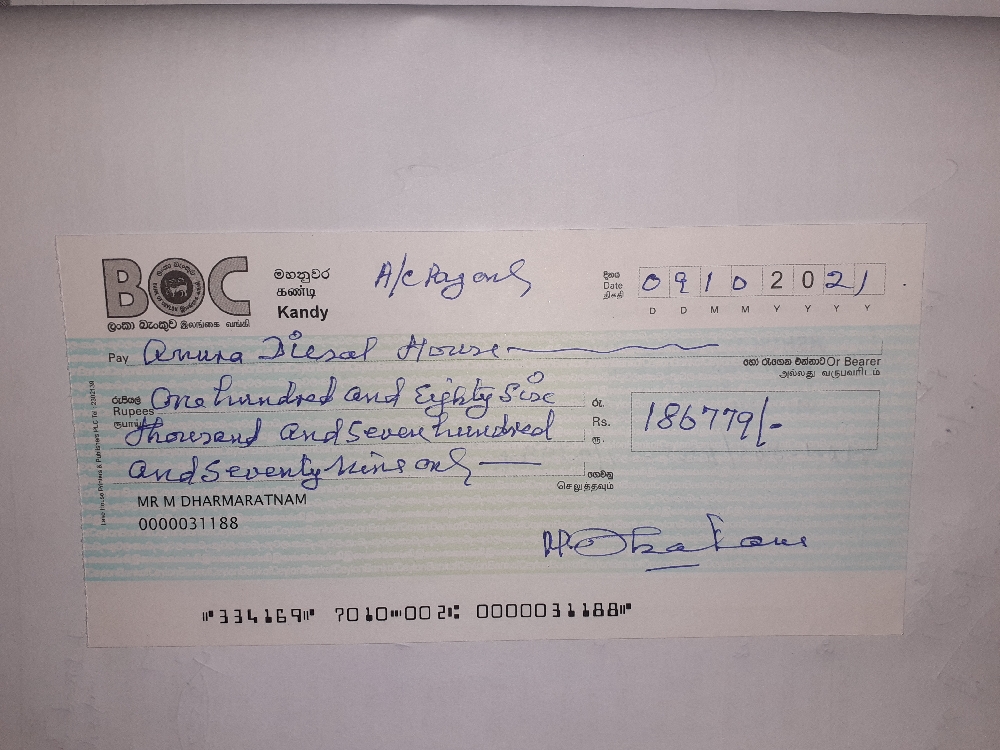 BOC
ලංකා බැංකුව இலங்கை வங்கி
මහනුවර
கண்டி
Kandy
A/c Pay only
දිනය
Date
திகதி
0 9 1 0 2 0 2 1
D D M M Y Y Y Y
Pay Anura Diesal House
හෝ රැගෙන එන්නාට Or Bearer
அல்லது வருபவரிடம்
රුපියල් One hundred and Eighty Six
Rupees
ரூபாய் Thousand and Seven hundred
and Seventy Nine only
රු.
Rs. 186779/-
ரூ.
ගෙවනු
செலுத்தவும்
MR M DHARMARATNAM
0000031188
334169 7010 002 0000031188